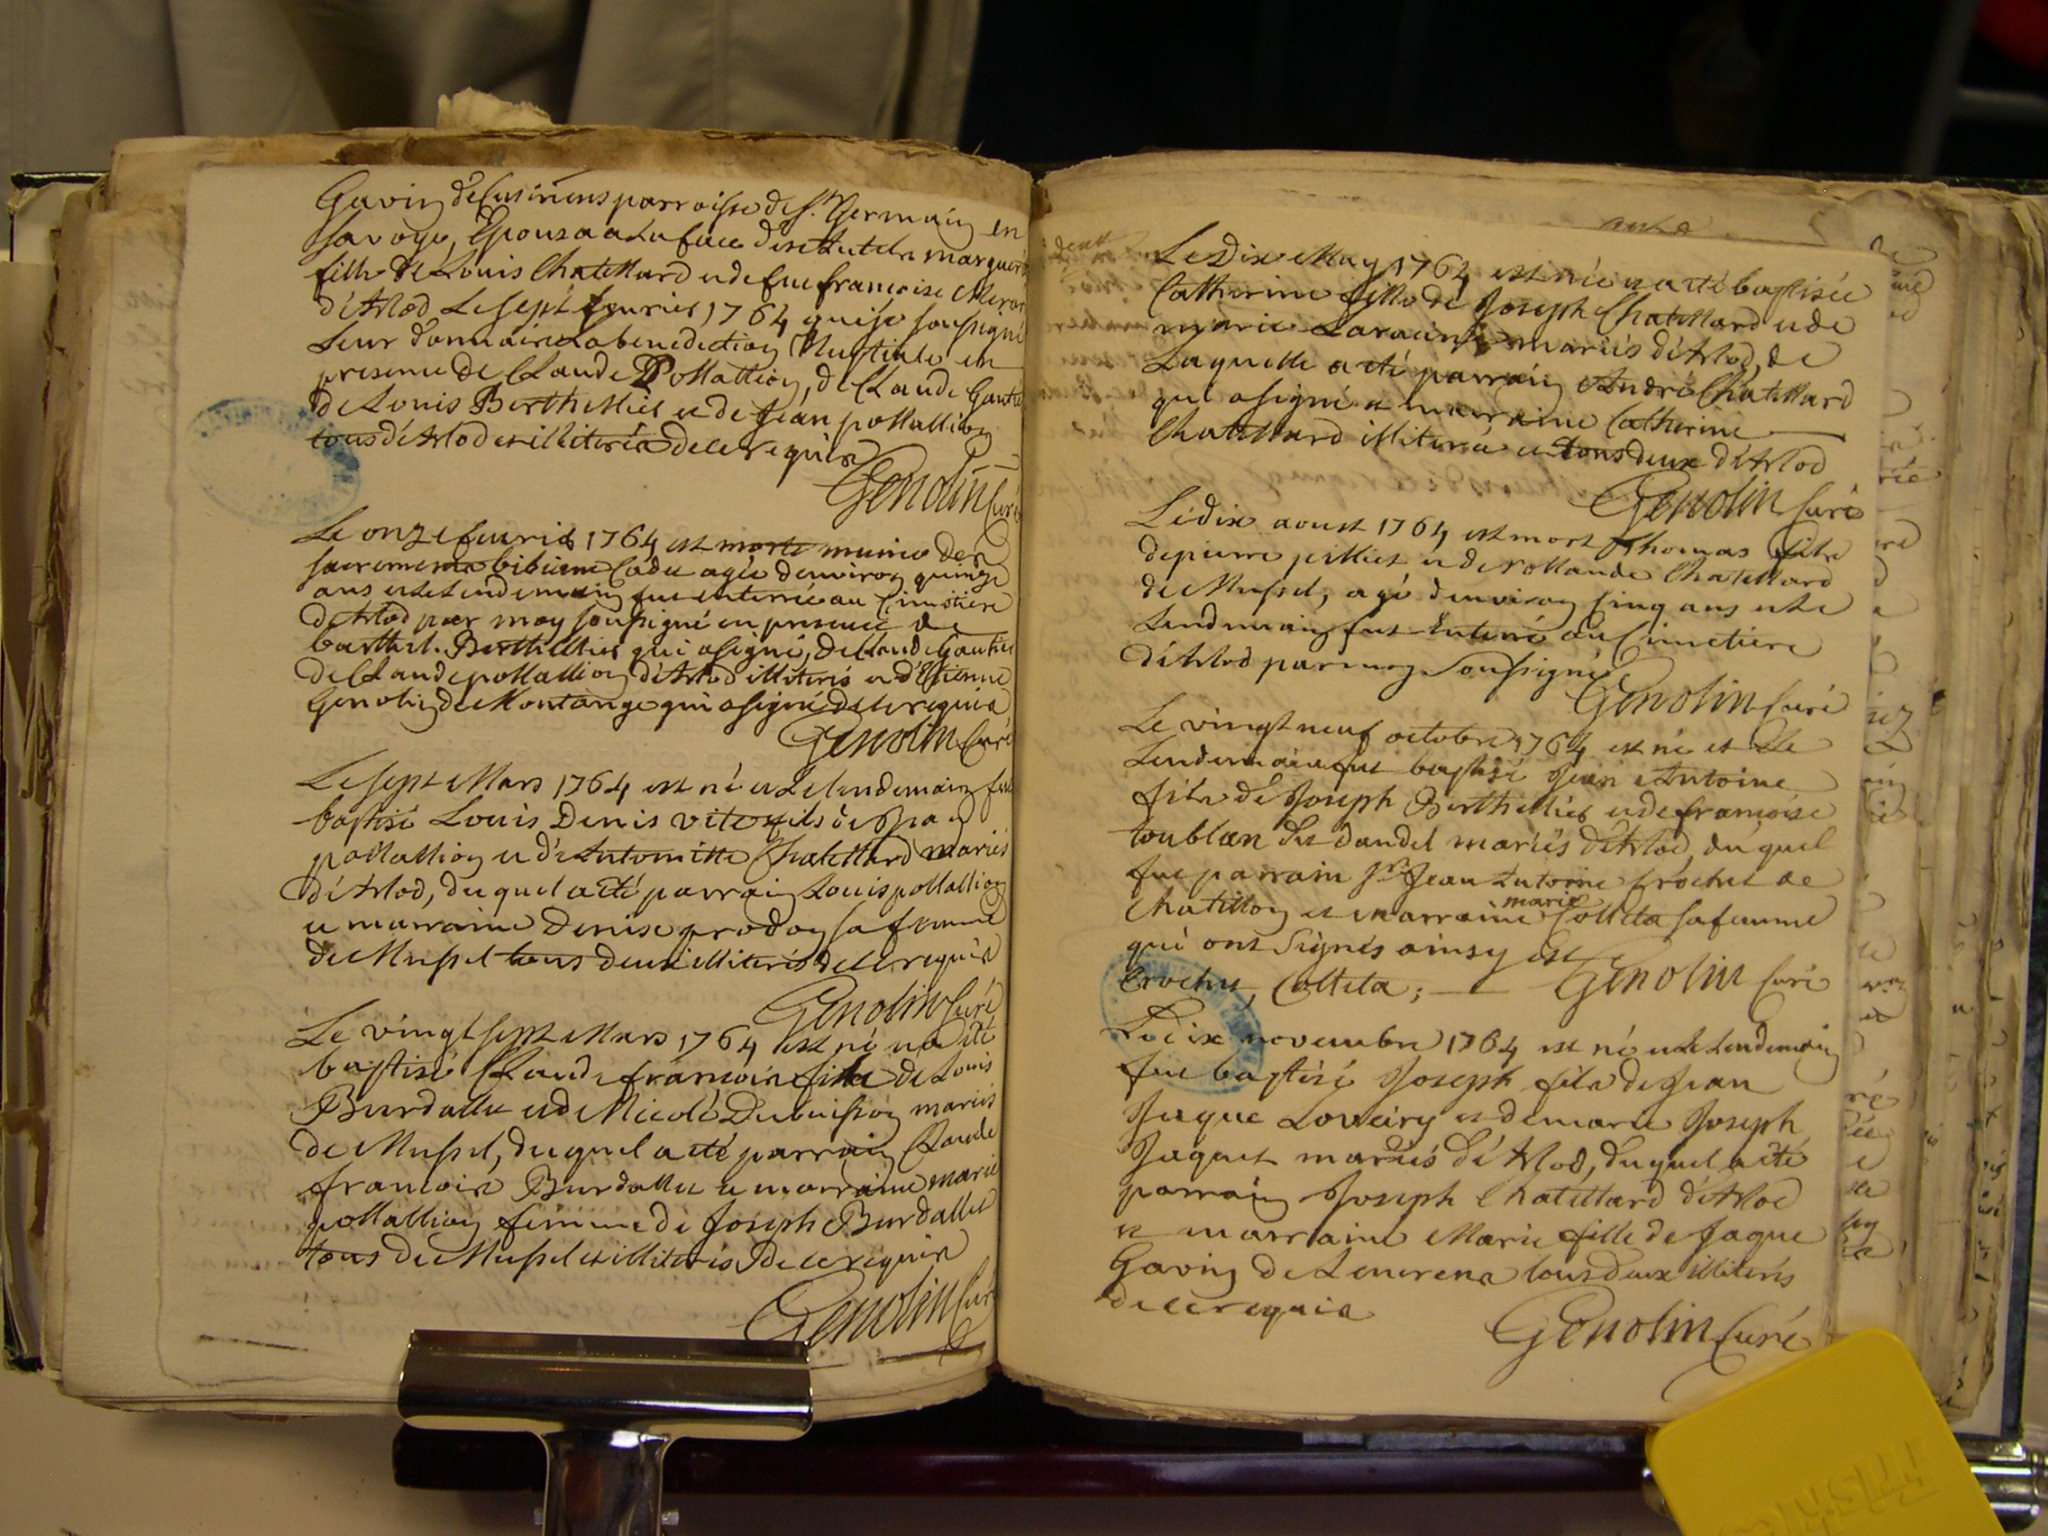 Gavin de parroisse de St. Germain en
Savoye, Epousa a la face de marguer
fille de Louis Chatellard et de feue francoise
d'Arlod Le sept feurier 1764 que je soussigné
Leur donnai la benediction Nuptiale en
presence de Claude Pollallion, de Claude Gautie
de Louis Berthillier et de Jean pollallion
tous d'Arlod et illiterés de ce requis
Genolin Curé
Le onze feurier 1764 est morte munie des
sacremens bibienne agée d'environ quinze
ans et le lendemain fut enterrée au Cimetiere
d'Arlod par moy soussigné en presence de
barthel. Berthillier qui a signé, de Claude Gautier
de Claude pollallion d'Arlod illiterés et d'Etienne
Genolin de Montange qui a signé de ce requis
Genolin Curé
Le sept Mars 1764 est né et Le lendemain fut
baptisé Louis Denis fils de
pollallion et d'Antoinette Chatellard mariés
d'Arlod, du quel a été parrain Louis pollallion
et marraine Denise prodon sa femme
de Mussel tous deux illiterés de ce requis
Genolin Curé
Le vingt sept Mars 1764 est né et a été
baptisé Claude francois fils de Louis
Burdallet et de Nicole Dubuisson mariés
de Mussel, du quel a été parrain Claude
francois Burdallet et marraine marie
pollallion femme de Joseph Burdallet
tous de Mussel et illiterés de ce requis
Genolin Curé
Le Dix May 1764 est née et a été baptisée
Catherine fille de Joseph Chatellard et de
marie mariés d'Arlod, de
Laquelle a été parrain André Chatellard
qui a signé et marraine Catherine
Chatellard illiterée et tous deux d'Arlod
Genolin Curé
Le dix aoust 1764 est mort Thomas fils
de pierre pilliet et de rollande Chatellard
de Mussel, agé d'environ cinq ans et le
Lendemain fut Enterré au Cimetiere
d'Arlod par moy Soussigné
Genolin Curé
Le vingt neuf octobre 1764 est né et Le
Lendemain fut baptisé Jean Antoine
fils de Joseph Berthillier et de francoise
toublan dit dandel mariés d'Arlod, du quel
fut parrain Sr. Jean Antoine Crochet de
Chatillon et marraine marie Colleta sa femme
qui ont Signés ainsy est
Crochet, Colleta; Genolin Curé
Le dix novembre 1764 est né et le Lendemain
fut baptisé Joseph fils de Jean
Jaque et de marie Joseph
Jaquet mariés d'Arlod, du quel a été
parrain Joseph Chatellard d'Arlod
et marraine Marie fille de Jaque
Gavin de tous deux illiterés
de ce requis
Genolin Curé